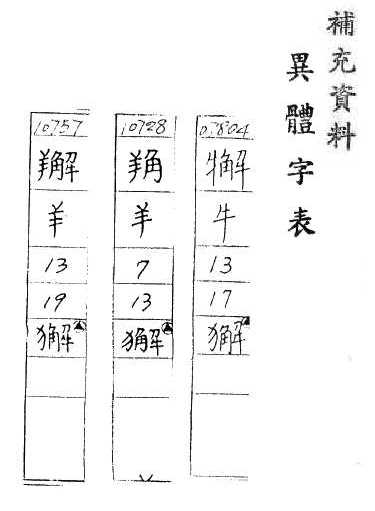 補充資料
異體字表
牛
13
17
獬
10728
羊
7
13
獬
10757
羊
13
19
獬